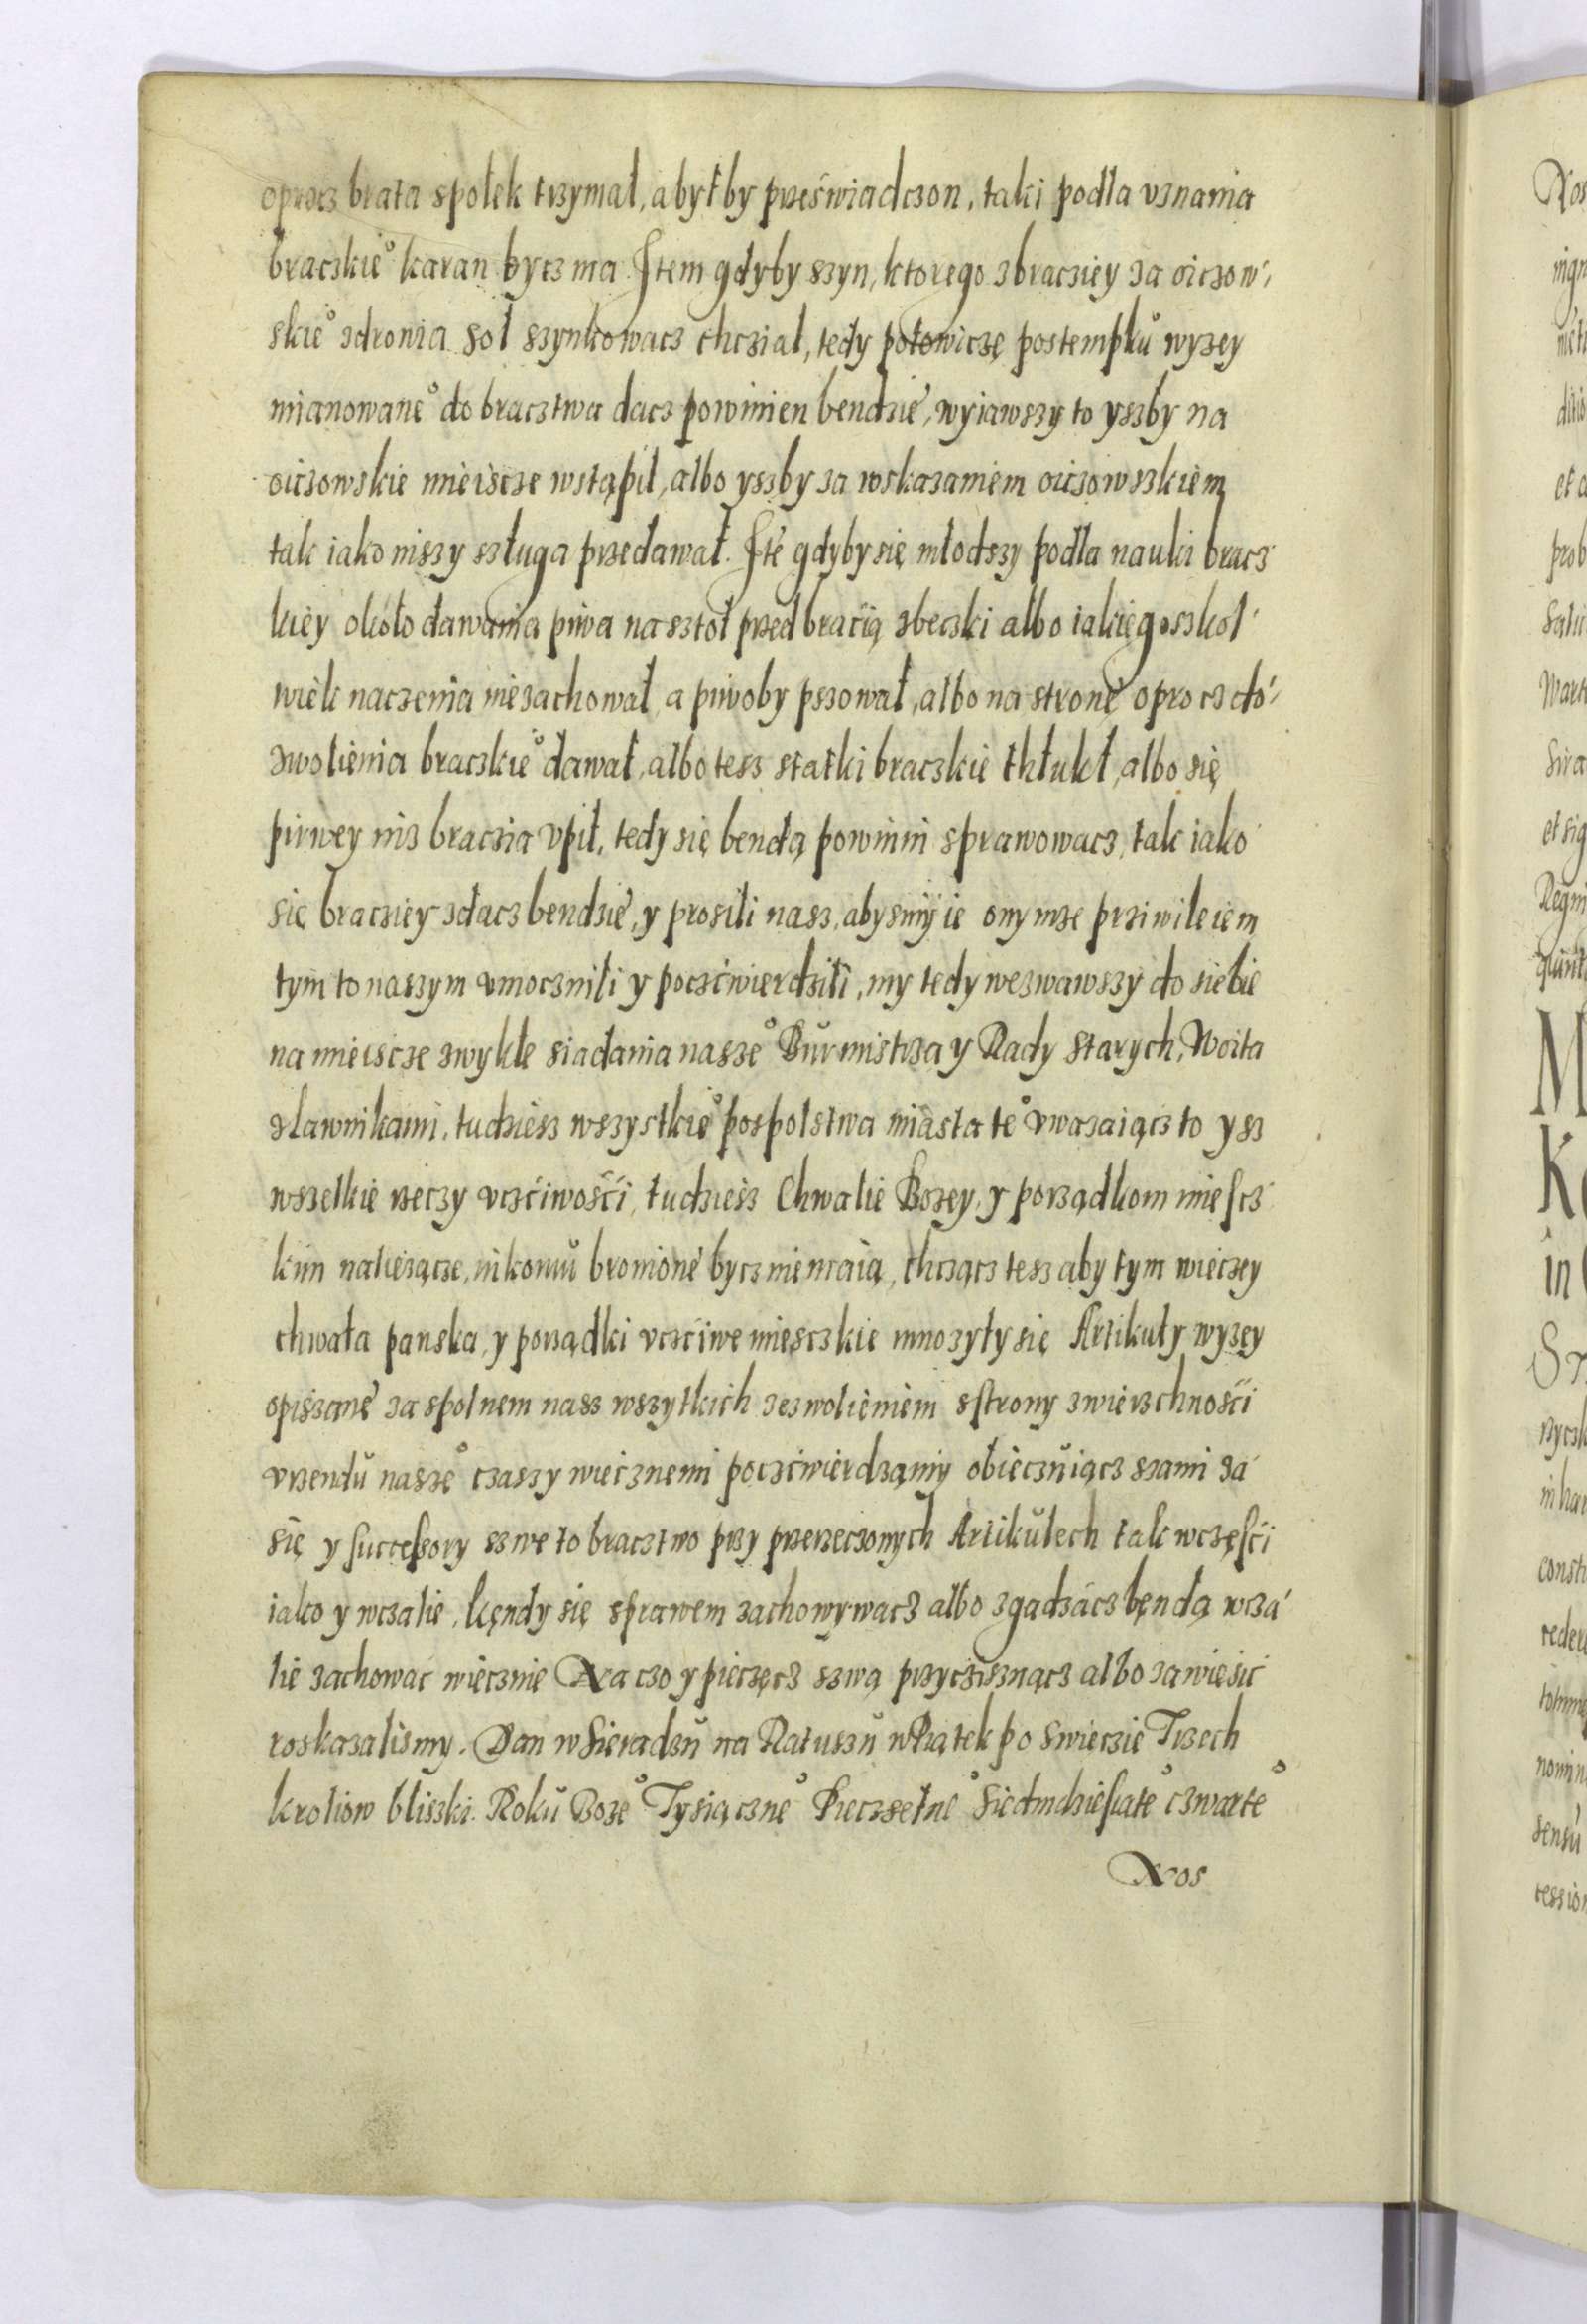 oprocz brata społek trzymał, a byłby przeświadczon, taki podla vznania
braczkie° karan bycz ma Item gdyby szyn, ktorego zbracziey za oiczow-
skie° zdrowia sol szynkowacz chczial, tedy połowiczę postempkŭ wyzey
mianowane° do bracztwa dacz powinien bendzie, wyiawszy to yszby na
oiczowskie mieiscze wstąpil, albo yszby za wskazaniem oiczowszkiem
tak iako niszy szługa przedawał. Itē gdyby się młodszy podla nauki bracz
kiey około dawania piwa na sztoł przed bracią zbeczki albo iakiegoszkol
wiek naczenia niezachował, a piwoby pszował, albo na stronē oprocz do-
zwolienia braczkie° dawał, albo tesz statki braczkie thłukł, albo się
pirwey nisz braczia vpił, tedy się bendą powinni sprawowacz, tak iako
się bracziey zdacz bendzie, y prosili nasz, abysmy ie onymze prziwileiem
tym to naszym vmocznili y poczćwierdzili, my tedy wezwawszy do siebie
na mieiscze zwykłe siadania nasze° Bŭrmistrza y Rady starych, Woita
zlawnikami, tudziesz wszystkie° pospolstwa miasta te° vwazaiącz to ysz
wszelkie rzeczy vczćiwośći, tudziesz Chwalie Bozey, y porządkom mieſcz
kim naliezącze, nikomŭ bronionē bycz niemaią, chczącz tesz aby tym wieczey
chwała panska, y porządki vczćiwe miesczkie mnozyły się Artikuły wyzey
opiszanē za spolnem nasz wszytkich zezwolieniem sſtrony zwierzchnośći
vrzendŭ nasze° czaszy wiecznemi poczćwierdzamy obieczŭiącz szami za
się y ſucceſsory szwe to bracztwo przy przerzeczonych Artikŭlech tak wczęſći
iako y wczalie, kęndy się sprawem zachowywacz albo zgadzacz będą wcza
lie zachowac wiecznie Na czo y pieczęcz szwą przycziszńącz albo zawiesić
roskazalismy. Dan w Sieradzŭ na Ratuszŭ w Piątek po Swieczie Trzech
kroliow bliszki. Rokŭ Boze° Tysiączne° Pieczsetne° Siedmdzieſiate° czwarte°
Nos